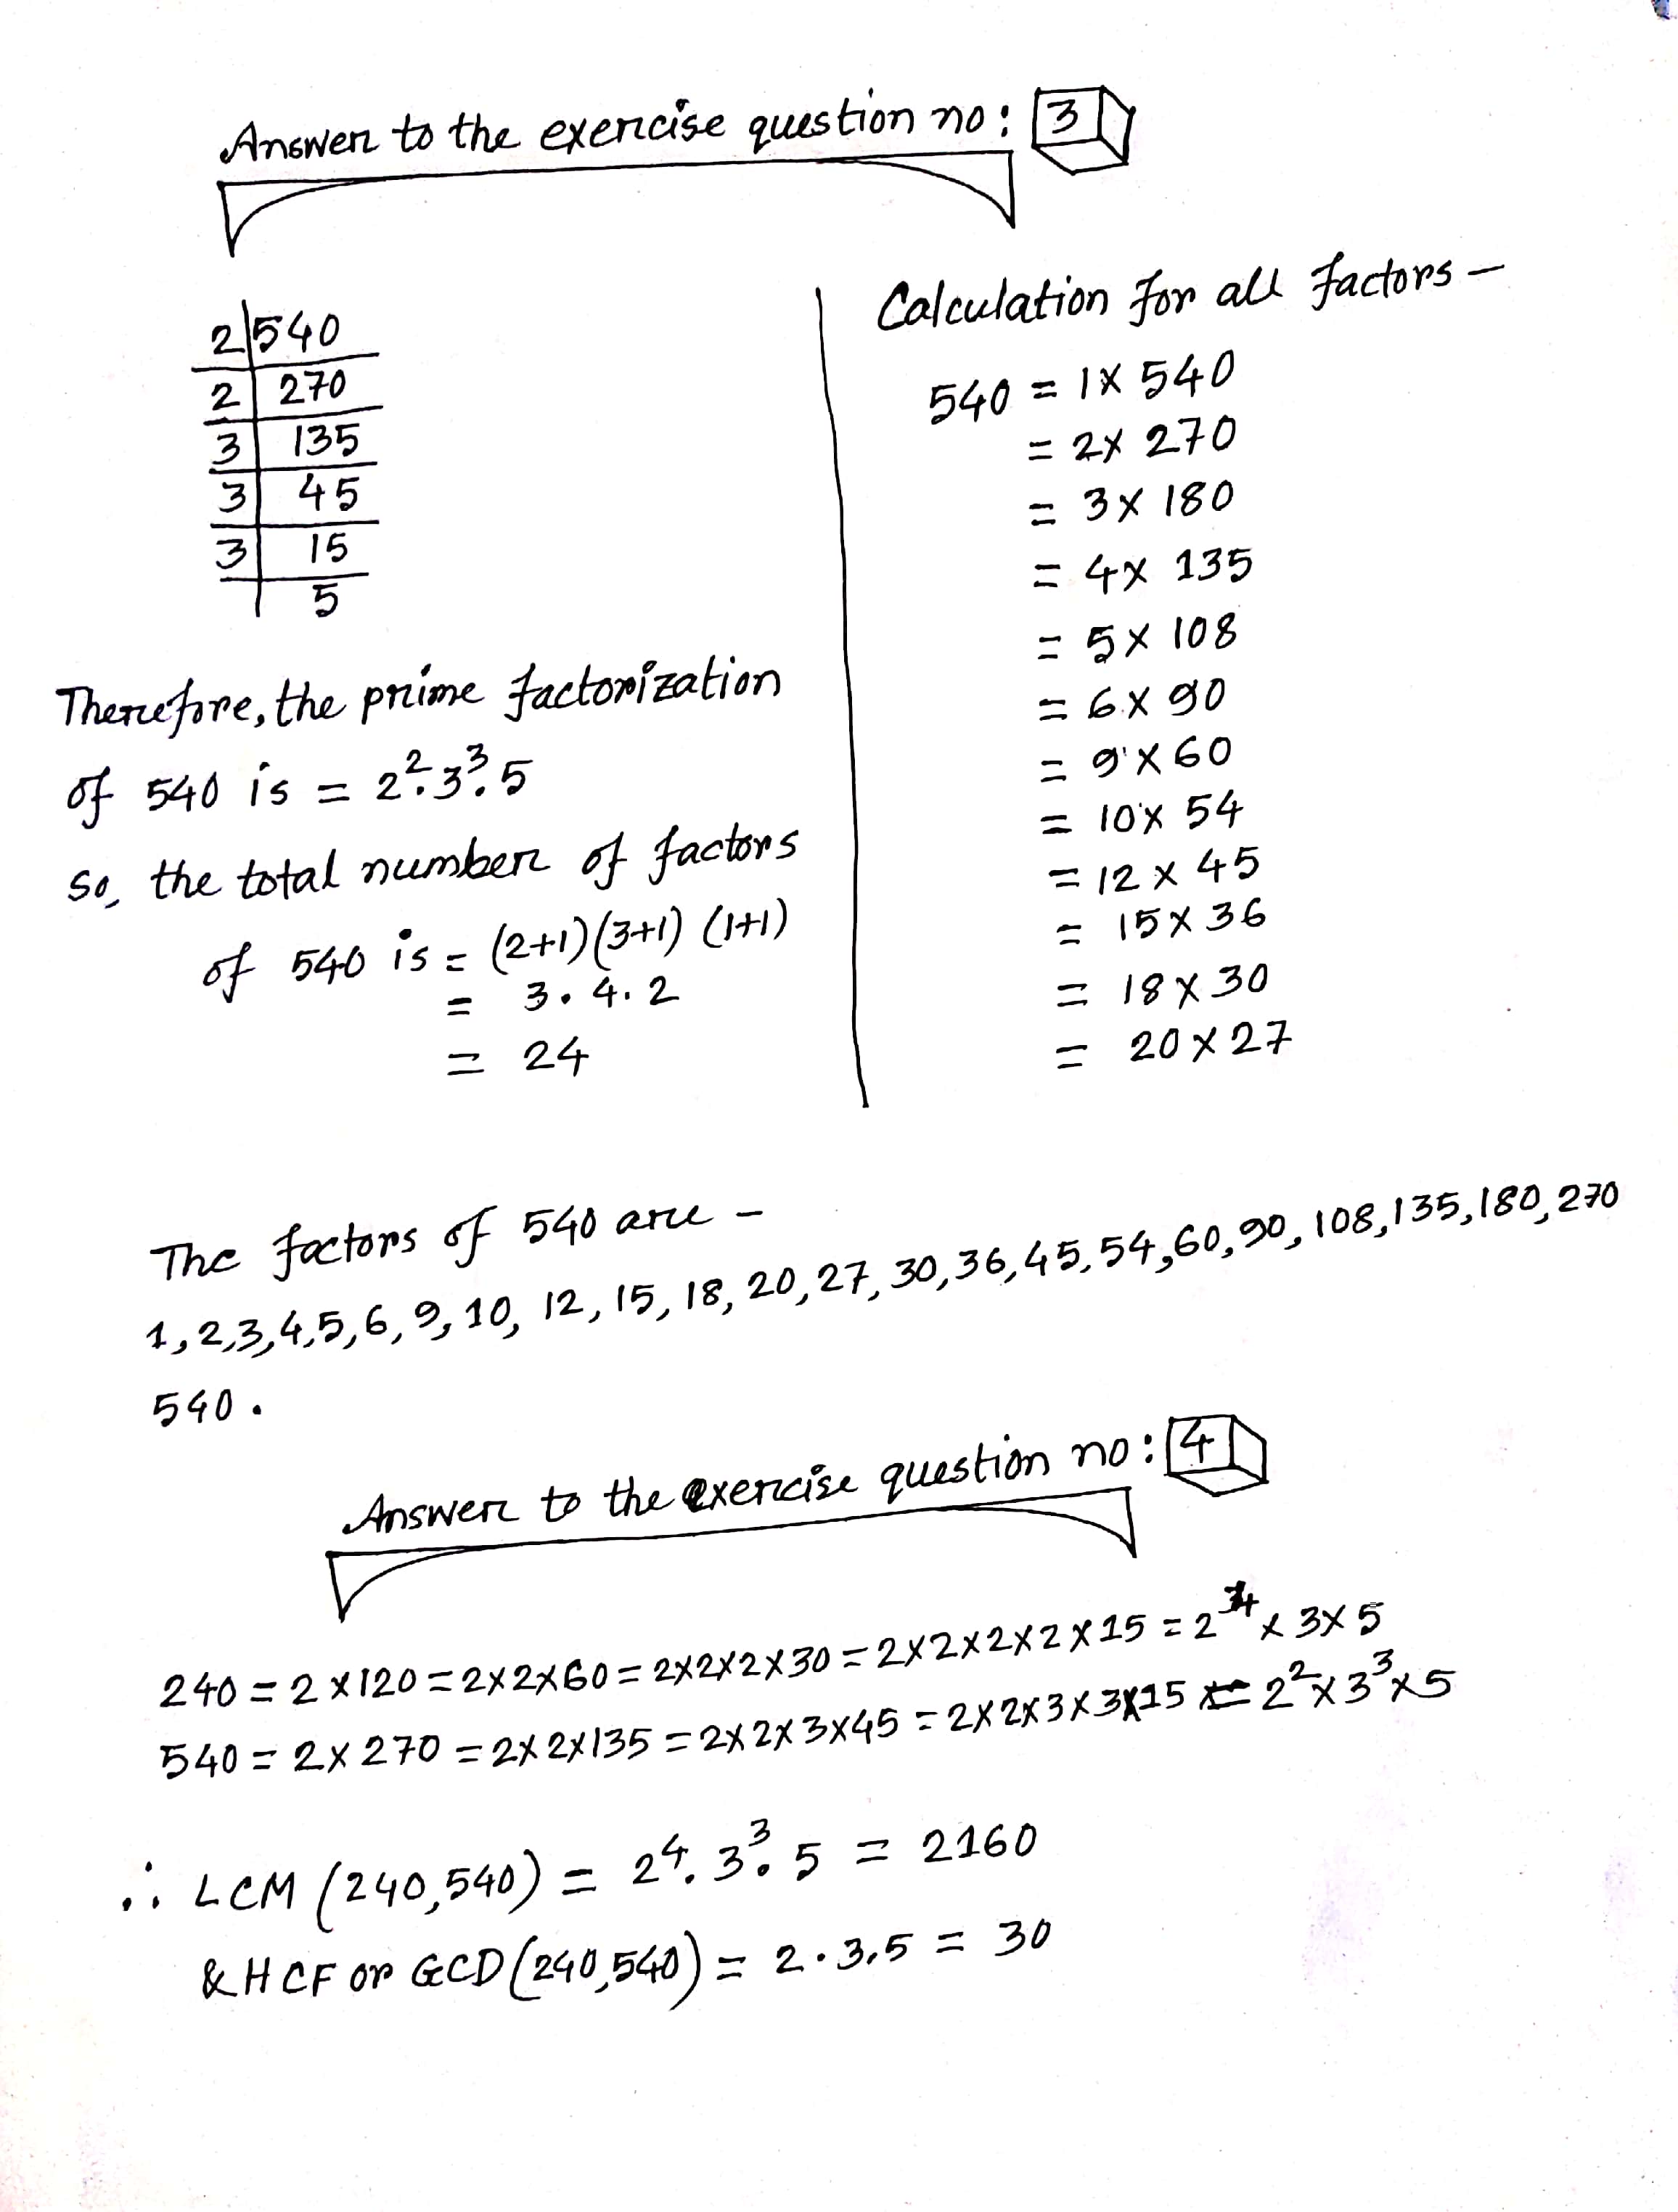 Answer to the exercise question no: 3
2 540
2 270
3 135
3 45
3 15
5
Therefore, the prime factorization
of 540 is = 2².3³.5
so, the total number of factors
of 540 is = (2+1)(3+1) (1+1)
= 3. 4. 2
= 24
Calculation for all factors –
540 = 1 × 540
= 2 × 270
= 3 × 180
= 4 × 135
= 5 × 108
= 6 × 90
= 9 × 60
= 10 × 54
= 12 × 45
= 15 × 36
= 18 × 30
= 20 × 27
The factors of 540 are –
1, 2, 3, 4, 5, 6, 9, 10, 12, 15, 18, 20, 27, 30, 36, 45, 54, 60, 90, 108, 135, 180, 270
540.
Answer to the exercise question no: 4
240 = 2 × 120 = 2×2×60 = 2×2×2×30 = 2×2×2×2×15 = 2⁴ × 3×5
540 = 2× 270 = 2×2×135 = 2×2×3×45 = 2×2×3×3×15 = 2²×3³×5
∴ LCM (240,540) = 2⁴. 3³. 5 = 2160
& HCF or GCD (240,540) = 2.3.5 = 30